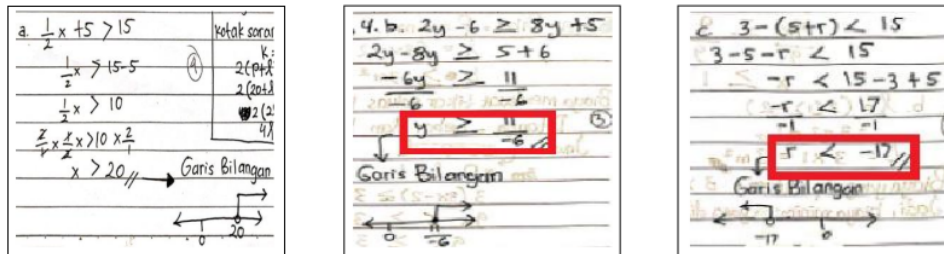 a. 1/2 x + 5 > 15
1/2 x > 15-5
1/2 x > 10
2/1 x 1/2 x > 10 x 2/1
x > 20 //
Garis Bilangan
0 20
kotak
k:
2(p+l
2(20+l
4l
4. b. 2y - 6 ≥ 8y + 5
2y - 8y ≥ 5 + 6
-6y/-6 ≥ 11/-6
y ≥ 11/-6 //
Garis Bilangan
0 11/-6
3-(5+r) < 15
3-5-r < 15
-r < 15-3+5
-r/-1 < 17/-1
r < -17 //
Garis Bilangan
-17 0